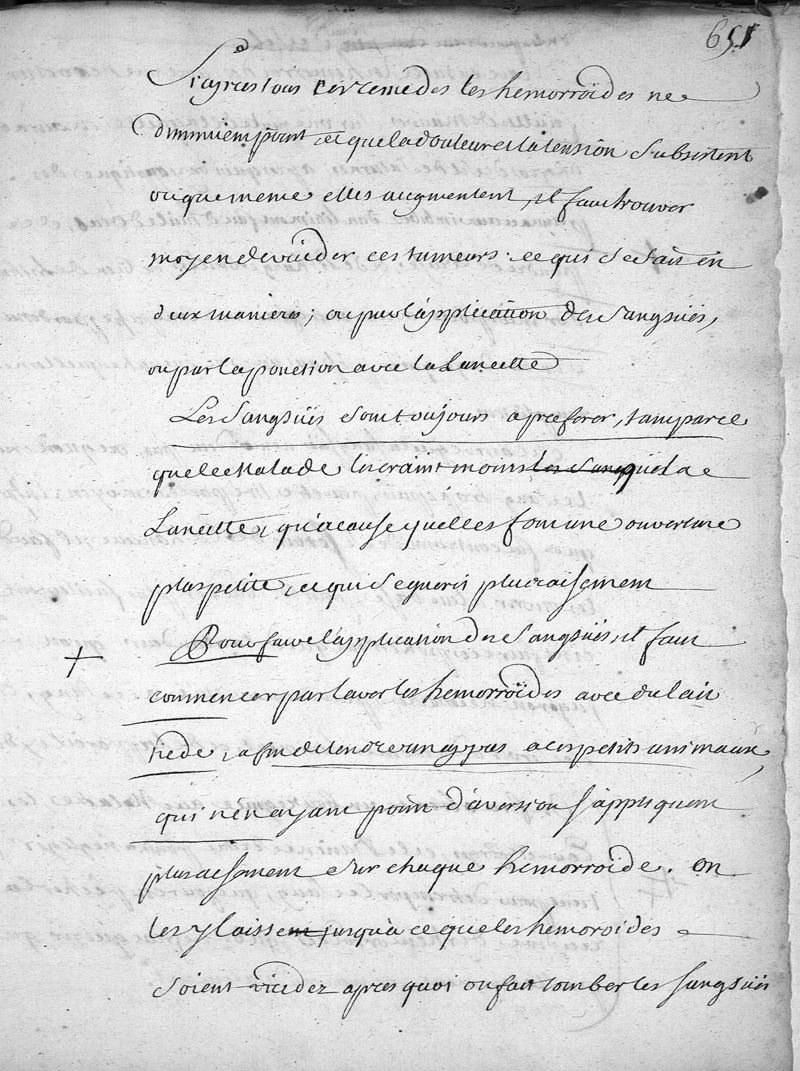 651
Si apres tous ces remedes les hemorroïdes ne
diminuent point et que la douleur et la tension subsistent
ou que meme elles augmentent, il faut trouver
moyen de vuider ces tumeurs. ce qui se fait en
deux manieres; ou par l'application des Sangsües,
ou par la ponction avec la Lancette
Les Sangsües sont toujours a preferer, tant parce
que le Malade les craint moins les Sang que la
Lancette, qu'a cause qu'elles font une ouverture
plus petite, et qui se guerit plus aisement
Pour faire l'application des Sangsües, il faut
commencer par laver les hemorroïdes avec du lait
tiede, afin de tendre un appas a ces petits animaux,
qui n'en ayant point d'aversion s'appliquent
plus aisement sur chaque hemorroïde. on
les y laissent jusqu'a ce que les hemoroides
soient vuidez apres quoi on fait tomber les sangsües